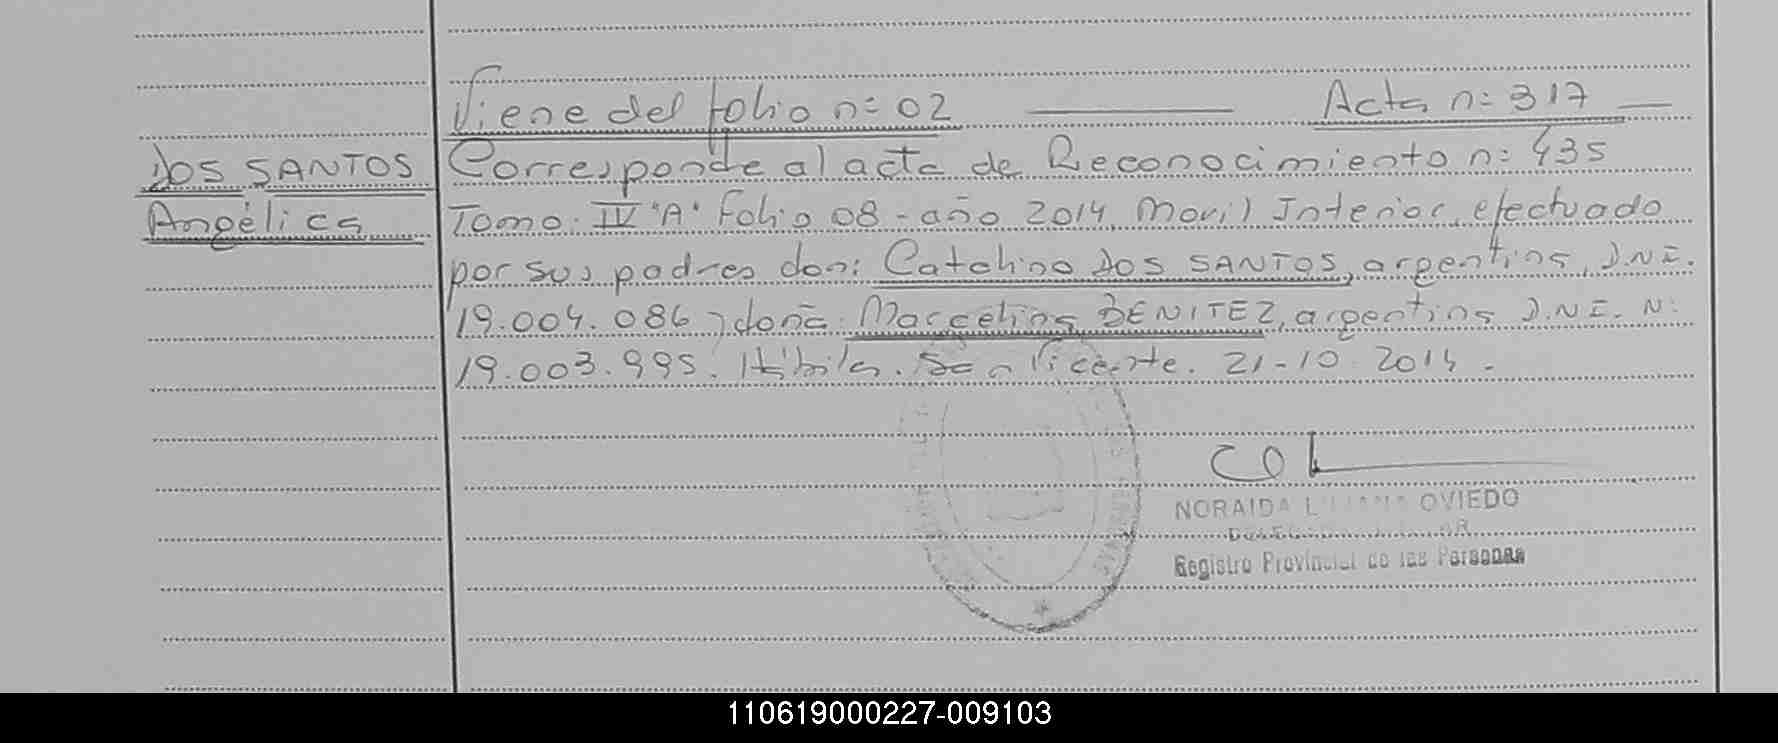 Viene del folio n: 02 Acta n: 317
DOS SANTOS Corresponde al acta de Reconocimiento n: 435
Angélica Tomo. IV "A" Folio 08 - año 2014, Movil Interior, efectuado
por sus padres don: Catalino DOS SANTOS, argentino, D.N.I.
19.004.086 y doña: Marcelina BENITEZ, argentina D.N.I. N:
19.003.995. Hábiles. San Vicente. 21-10-2014.
NORAIDA LILIANA OVIEDO
Registro Provincial de las Personas
110619000227-009103